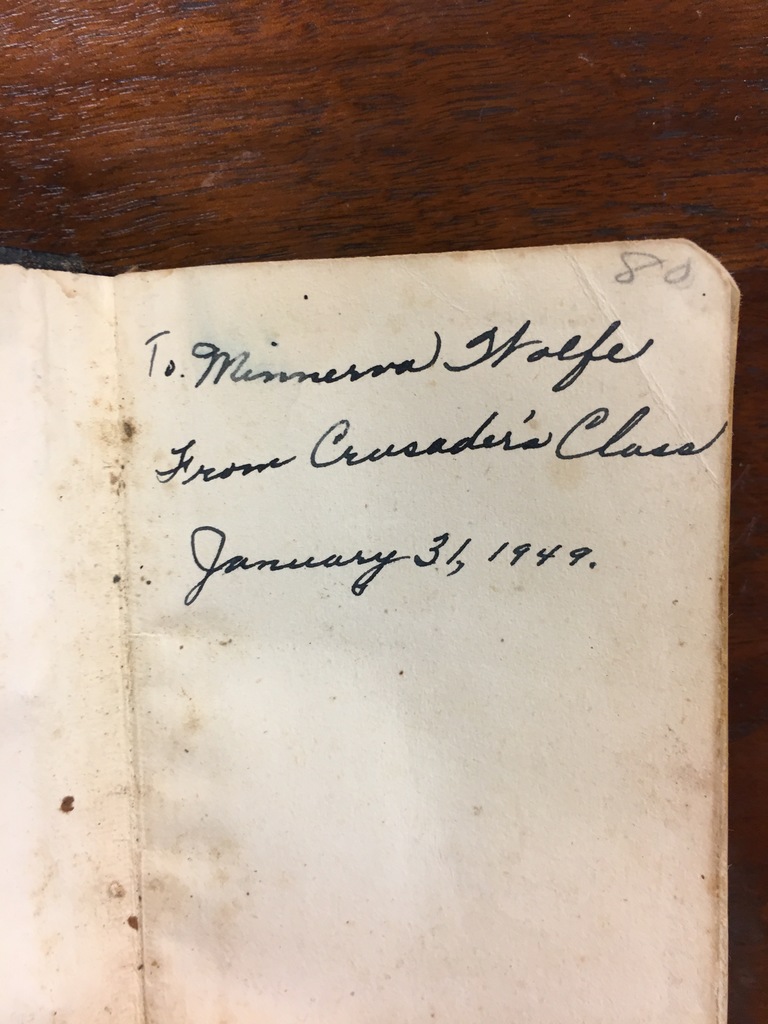 80
To. Minnerva Wolfe
From Crusader's Class
January 31, 1949.